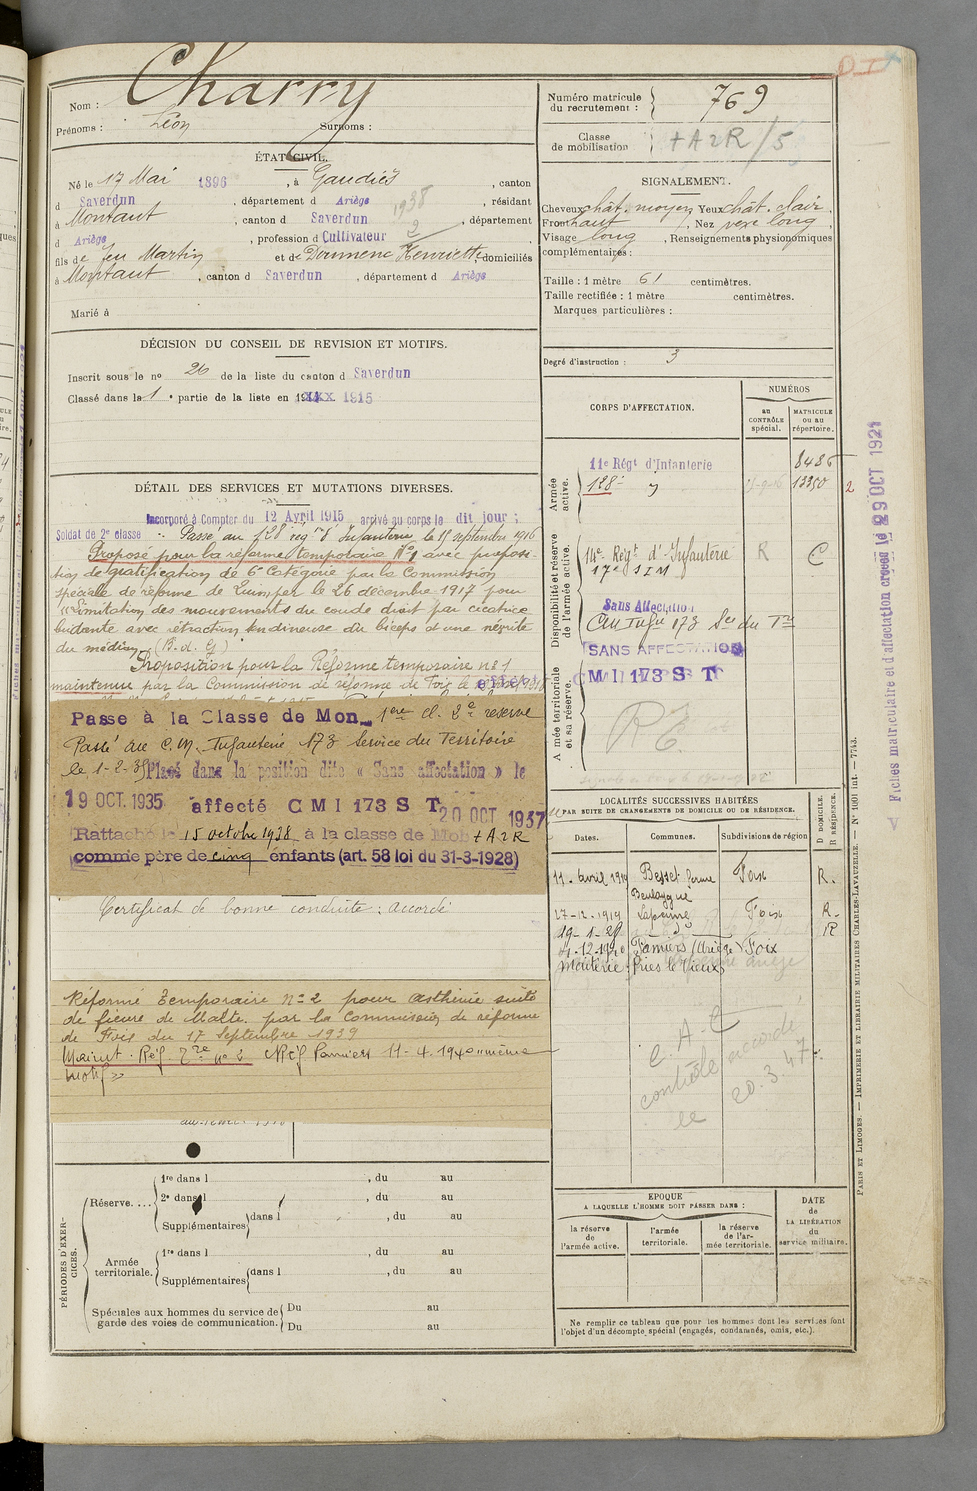 Nom : Charry
Prénoms : Léon Surnoms :
ÉTAT CIVIL.
Né le 17 Mai 1896, à Gaudiès, canton
d Saverdun, département d Ariège, résidant
à Montaut, canton d Saverdun, département
d Ariège, profession d Cultivateur
1938
2
fils de feu Martin et de Doumenc Henriette domiciliés
à Montaut, canton d Saverdun, département d Ariège
Marié à
DÉCISION DU CONSEIL DE REVISION ET MOTIFS.
Inscrit sous le no 26 de la liste du canton d Saverdun
Classé dans la 1 e partie de la liste en 1915
DÉTAIL DES SERVICES ET MUTATIONS DIVERSES.
Incorporé à Compter du 12 Avril 1915 arrivé au corps le dit jour ;
Soldat de 2e classe Passé au 128 régt d'Infanterie le 15 septembre 1916
Proposé pour la réforme temporaire No 1 avec proposi-
tion de gratification de 6e Catégorie par la Commission
spéciale de réforme de Quimper le 26 décembre 1917 pour
"Limitation des mouvements du coude droit par cicatrice
bridante avec rétraction tendineuse du biceps et une névrite
du médian (B. d. G)
Proposition pour la Réforme temporaire no 1
maintenue par la Commission de réforme de Foix le
Passe à la Classe de Mon 1ere cl. 2e réserve
Passé au C. M. Infanterie 173 Service du Territoire
le 1-2-35 Placé dans la position dite « Sans affectation » le
19 OCT. 1935 affecté C M I 173 S T 20 OCT 1937
Rattaché le 15 octobre 1938 à la classe de Mob + A 2 R
comme père de cinq enfants (art. 58 loi du 31-3-1928)
Certificat de bonne conduite : accordé
Réformé temporaire no 2 pour asthénie suite
de fièvre de Malte par la Commission de réforme
de Foix du 17 Septembre 1939
Maint. Réf. Tre no 2 Pamiers 11-4-1940 même
motif »
PÉRIODES D'EXERCICES.
Réserve....
1re dans l , du au
2e dans l , du au
Supplémentaires dans l , du au
Armée territoriale.
1re dans l , du au
Supplémentaires dans l , du au
Spéciales aux hommes du service de garde des voies de communication.
Du au
Du au
Numéro matricule du recrutement : 769
Classe de mobilisation + A 2 R / 5
SIGNALEMENT.
Cheveux chât. moyen Yeux chât. clair,
Front haut, Nez vexe long,
Visage long, Renseignements physionomiques
complémentaires :
Taille : 1 mètre 61 centimètres.
Taille rectifiée : 1 mètre centimètres.
Marques particulières :
Degré d'instruction : 3
CORPS D'AFFECTATION.
NUMÉROS
au CONTRÔLE spécial.
MATRICULE ou au répertoire.
Armée active.
11e Régt d'Infanterie 8486
128e 13350 2
Disponibilité et réserve de l'armée active.
14e Régt d'Infanterie R C
17e S I M
Sans Affectation
CM Infie 173 Sce du Tre
SANS AFFECTATION
Armée territoriale et sa réserve.
C M I 173 S T
LOCALITÉS SUCCESSIVES HABITÉES
PAR SUITE DE CHANGEMENTS DE DOMICILE OU DE RÉSIDENCE.
D DOMICILE. R RÉSIDENCE.
Dates. Communes. Subdivisions de région
11. avril 1919 Besset Foix R.
27-12-1919 Foix R.
19-1-29 R
Pamiers (Ariège) Foix
C. A. C
contrôle accordé
le 20.3.47
EPOQUE
A LAQUELLE L'HOMME DOIT PASSER DANS :
la réserve de l'armée active.
l'armée territoriale.
la réserve de l'armée territoriale.
DATE de LA LIBÉRATION du service militaire.
Ne remplir ce tableau que pour les hommes dont les services font
l'objet d'un décompte spécial (engagés, condamnés, omis, etc.).
Fiches matriculaire et d'affectation créées le 29 OCT 1921
PARIS ET LIMOGES. — IMPRIMERIE ET LIBRAIRIE MILITAIRES CHARLES-LAVAUZELLE. — No 1001 int. — 7743.